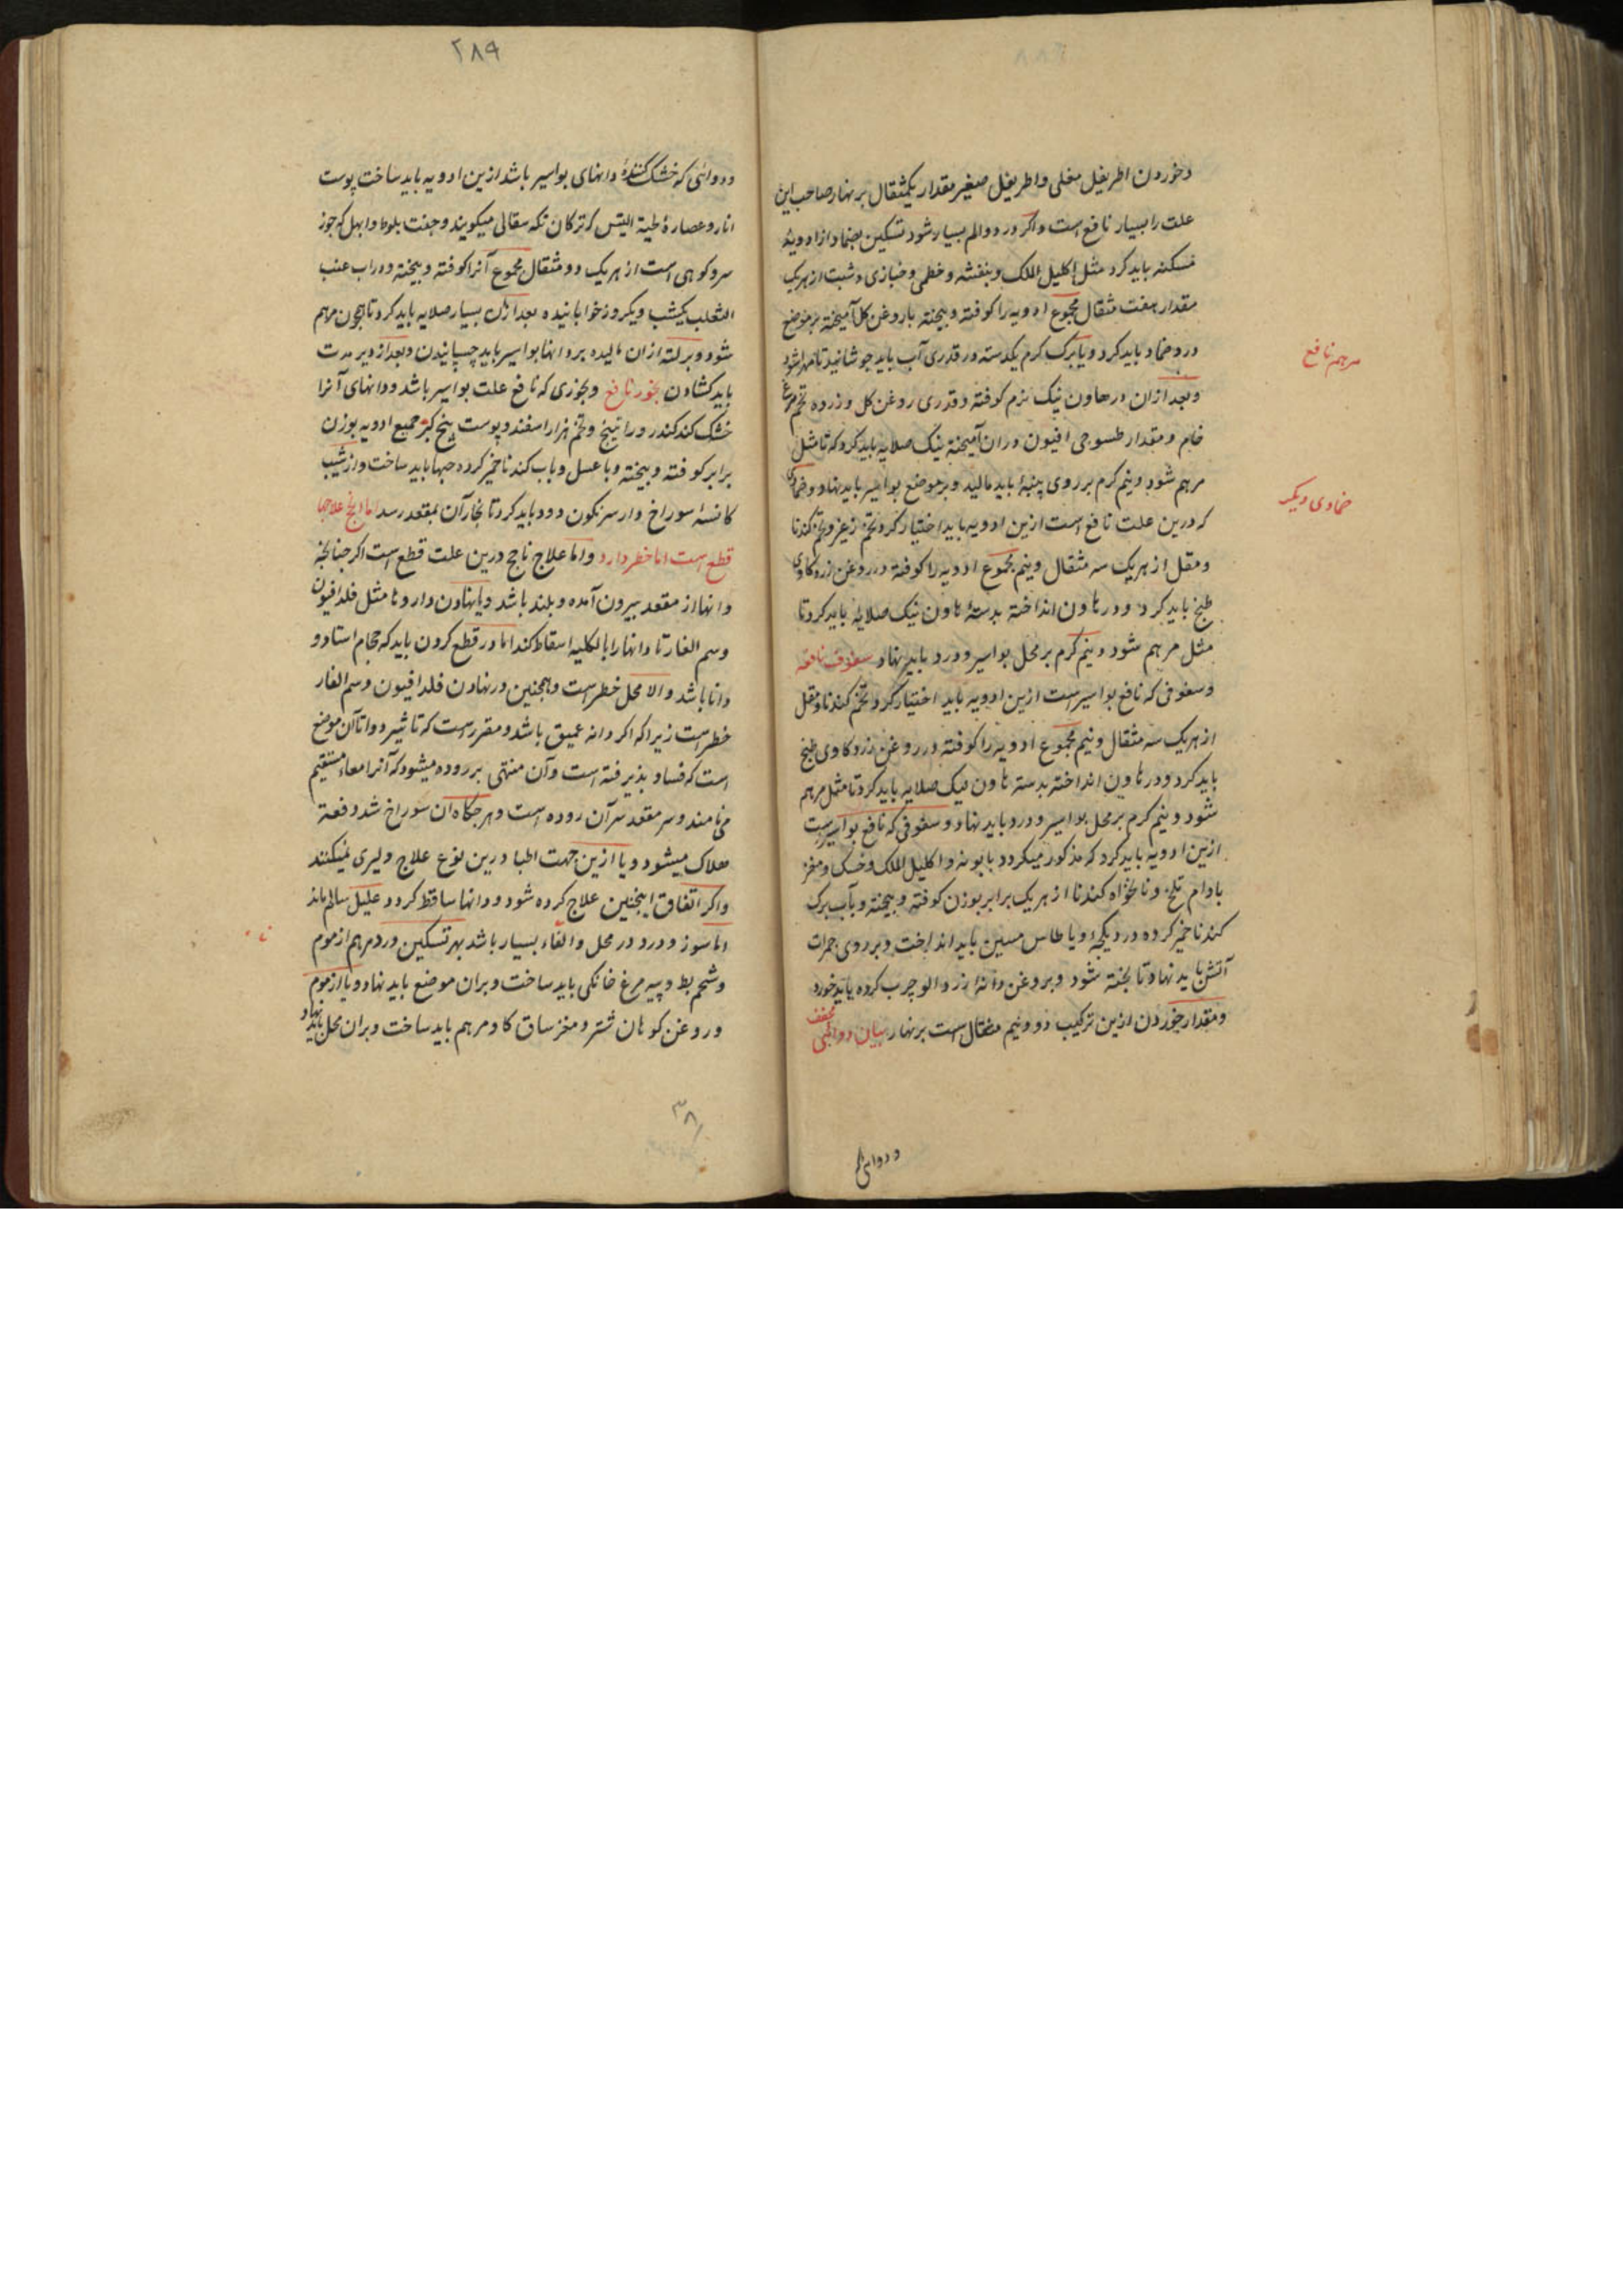 وخوردن اطریفل مقلی واطریفل صغیر مقدار یکمثقال برنهار صاحب این
علت را بسیار نافع است واکر درد والم بسیار شود تسکین بضماد از ادویهٔ
مسکنه باید کرد مثل اکلیل الملک وبنفشه وخطمی وخبازی وشبت از هریک
مقدار هفت مثقال مجموع ادویه را کوفته وبیخته با روغن کل آمیخته بر موضع
درد ضماد باید کرد ویا برک کرم یکدسته در قدری آب باید جوشانید تا مهرا شود
مرهم نافع
وبعد ازان در هاون نیک نرم کوفته وقدری روغن کل وزرده تخم مرغ
خام ومقدار طسوجی افیون دران آمیخته نیک صلایه باید کرد که تا مثل
مرهم شود ونیم کرم بر روی پنبهٔ باید مالید وبر موضع بواسیر باید نهاد وضمادی
ضمادی دیکر
که درین علت نافع است ازین ادویه باید اختیار کرد تخم وتخم کندنا
ومقل از هریک سه مثقال ونیم مجموع ادویه را کوفته در روغن زرد کاوی
طبخ باید کرد ودر هاون انداخته بدستهٔ هاون نیک صلایه باید کرد تا
مثل مرهم شود ونیم کرم بر محل بواسیر ودرد باید نهاد سفوف نافعه
وسفوفی که نافع بواسیر است ازین ادویه باید اختیار کرد تخم کندنا ومقل
از هریک سه مثقال ونیم مجموع ادویه را کوفته در روغن زرد کاوی طبخ
باید کرد ودر هاون انداخته بدسته هاون نیک صلایه باید کرد تا مثل مرهم
شود ونیم کرم بر محل بواسیر ودرد باید نهاد وسفوفی که نافع بواسیر است
ازین ادویه باید کرد که مذکور میکردد بابونه واکلیل الملک وخسک ومغز
بادام تلخ ونانخواه کندنا از هریک برابر بوزن کوفته وبیخته وبآب برک
کندنا خمیر کرده در دیکچهٔ ویا طاس مسین باید انداخت وبر روی جمرات
آتش باید نهاد تا پخته شود وبروغن دانهٔ زردالو چرب کرده باید خورد
ومقدار خوردن ازین ترکیب دو ونیم مثقال است برنهار بیان دوائی مجفف
ودوائی که
۲۸۹
ودوائی که خشک کنندهٔ دانهای بواسیر باشد ازین ادویه باید ساخت پوست
انار وعصارهٔ لحیة التیس که ترکان تکه سقالی میکویند وجفت بلوط وابهل که جوز
سرو کوهی است از هریک دو مثقال مجموع آنرا کوفته وبیخته ودر آب عنب
الثعلب یکشب ویکروز خوابانیده بعد ازان بسیار صلایه باید کرد تا همچون مرهم
شود وبر لته ازان مالیده بر دانها بواسیر باید چسپانیدن وبعد از دیر مدت
باید کشادن بخور نافع وبخوری که نافع علت بواسیر باشد ودانهای آنرا
خشک کند کندر وراتینج وتخم هزار اسفند وپوست بیخ کبر جمیع ادویه بوزن
برابر کوفته وبیخته وبا عسل وباب کندنا خمیر کرده حبها باید ساخت واز شیب
کاسهٔ سوراخ دار سرنکون دود باید کرد تا بخار آن بمقعد رسد اما انجح علاجها
قطع است اما خطر دارد واما علاج ناجح درین علت قطع است اکر چنانچه
دانها از مقعد بیرون آمده وبلند باشد ویا نهادن داروها مثل فلدافیون
وسم الفار تا دانها را بالکلیه اسقاط کند اما در قطع کردن باید که حجام استاد و
دانا باشد والا محل خطر است وهمچنین در نهادن فلدافیون وسم الفار
خطر است زیرا که اکر دانه عمیق باشد ومقرر است که تاثیر دوا تا آن موضع
است که فساد پذیرفته است وآن منتهی بر روده میشود که آنرا معاء مستقیم
می نامند وسر مقعد سر آن روده است وهرجکاه ان سوراخ شد دفعة
هلاک میشود ویا ازین جهت اطبا درین نوع علاج دلیری نمیکنند
واکر اتفاق اینچنین علاج کرده شود ودانها ساقط کردد علیل سالم ماند
اما سوز ودرد در محل والقاء بسیار باشد بهر تسکین درد مرهم از موم
وشحم بط وپیه مرغ خانکی باید ساخت وبران موضع باید نهاد ویا از موم
وروغن کوهان شتر ومغز ساق کاو مرهم باید ساخت وبران محل باید نهاد
۳۸